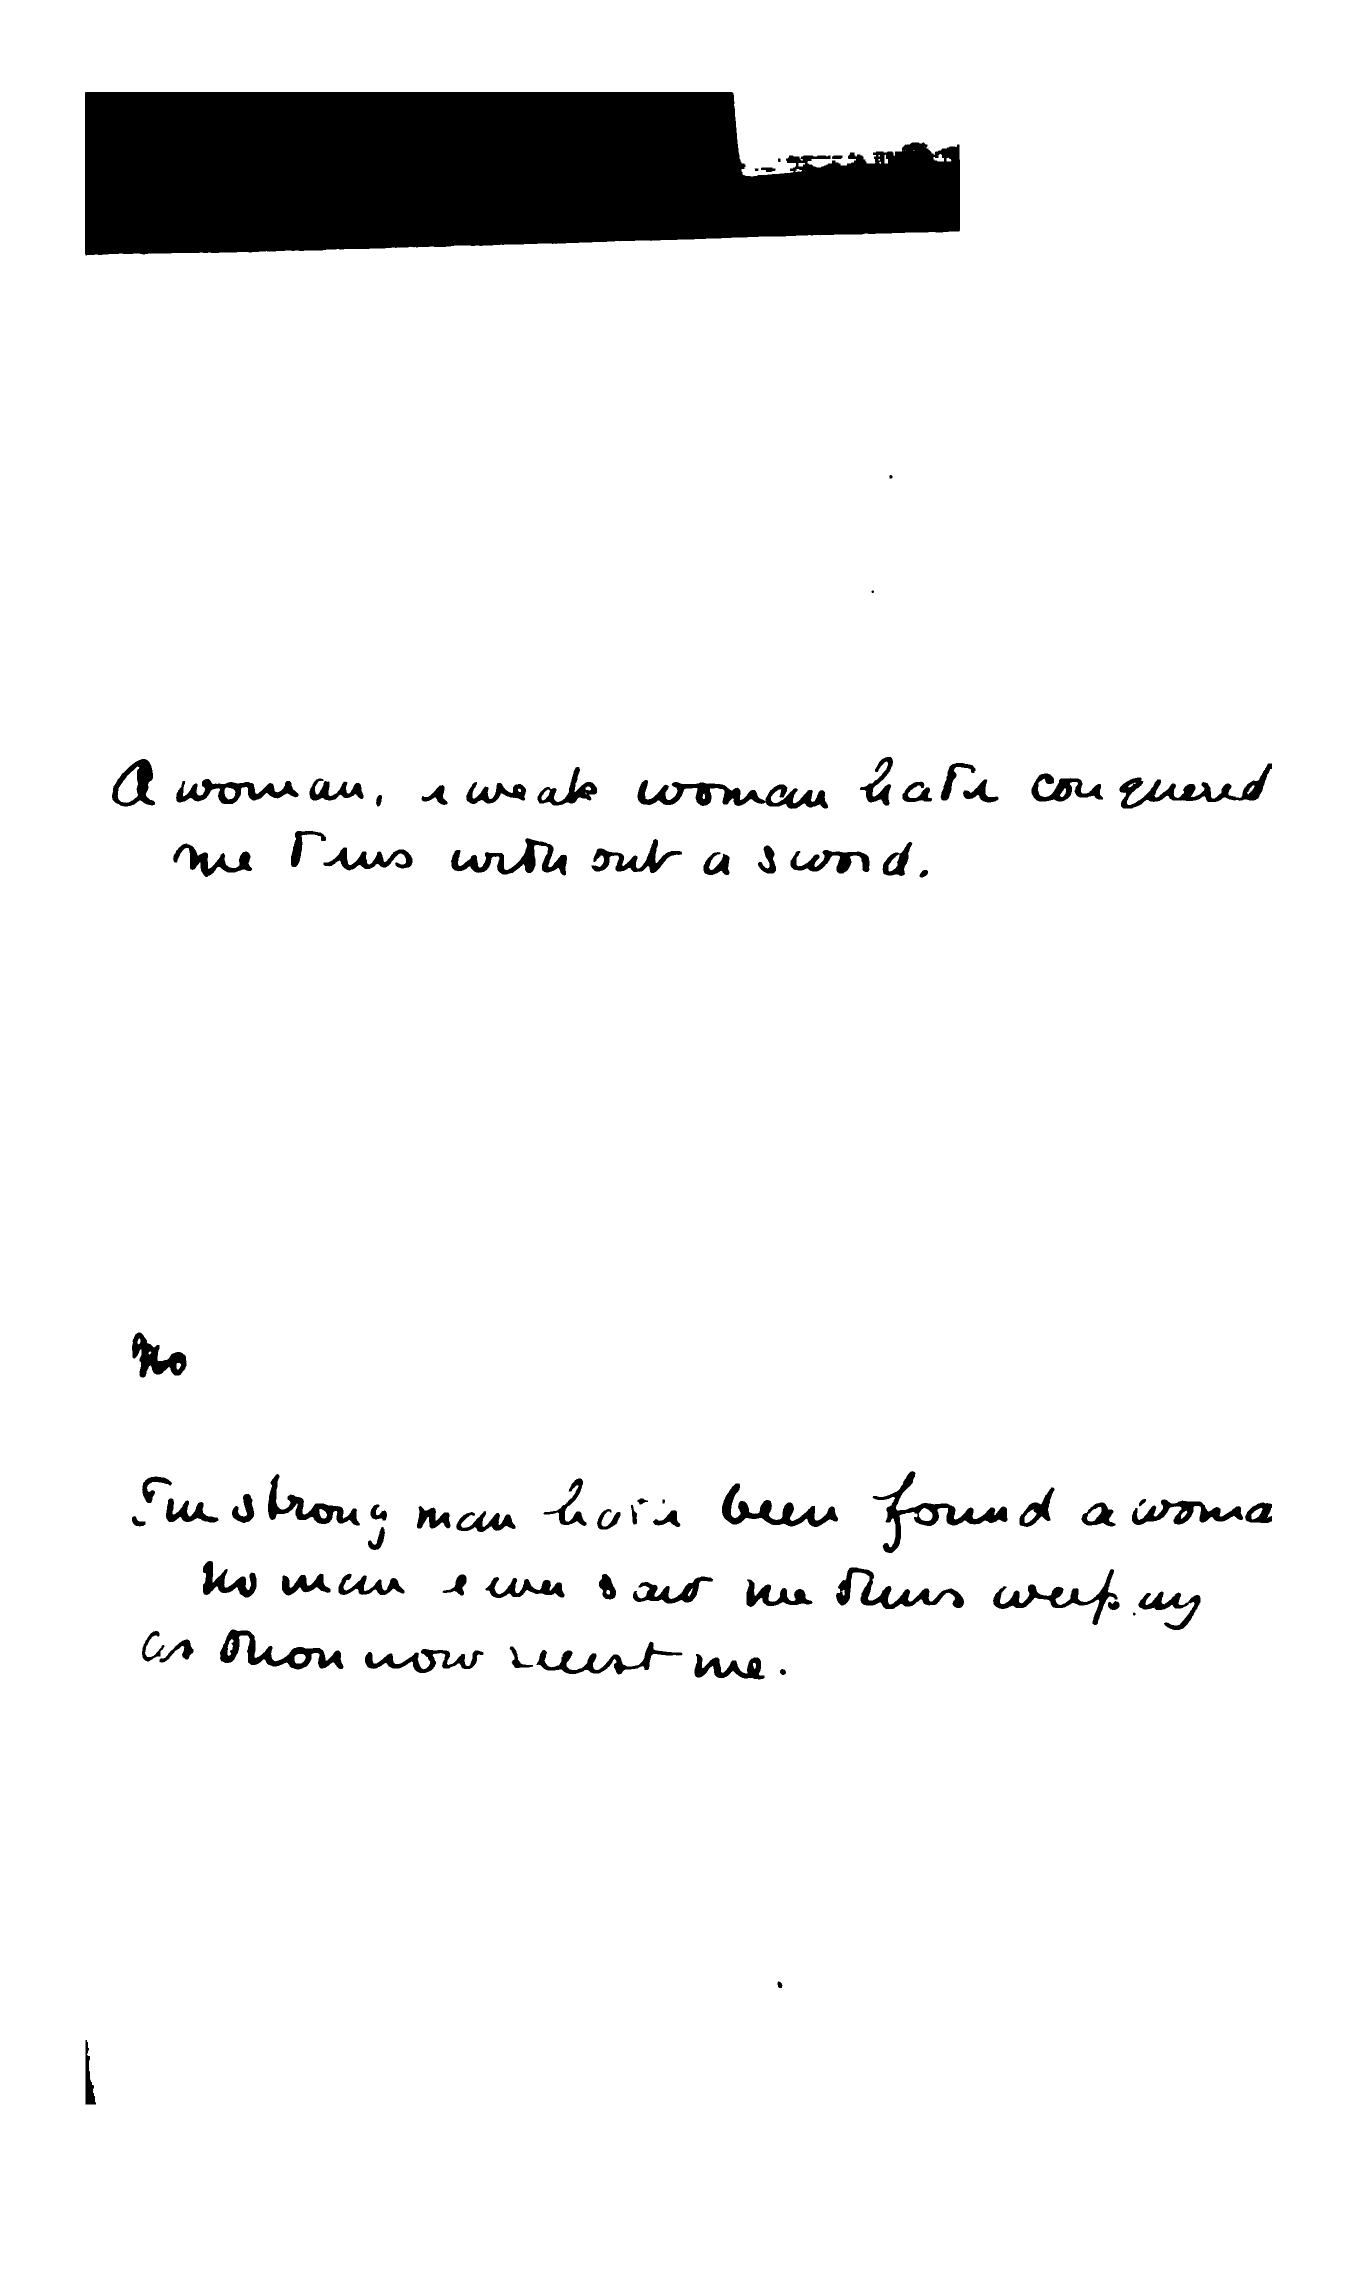 A woman, a weak woman hath conquered
me thus without a sword.
No
The strong man hath been found a woma
No man ever said me thus weeping
as thou now seest me.